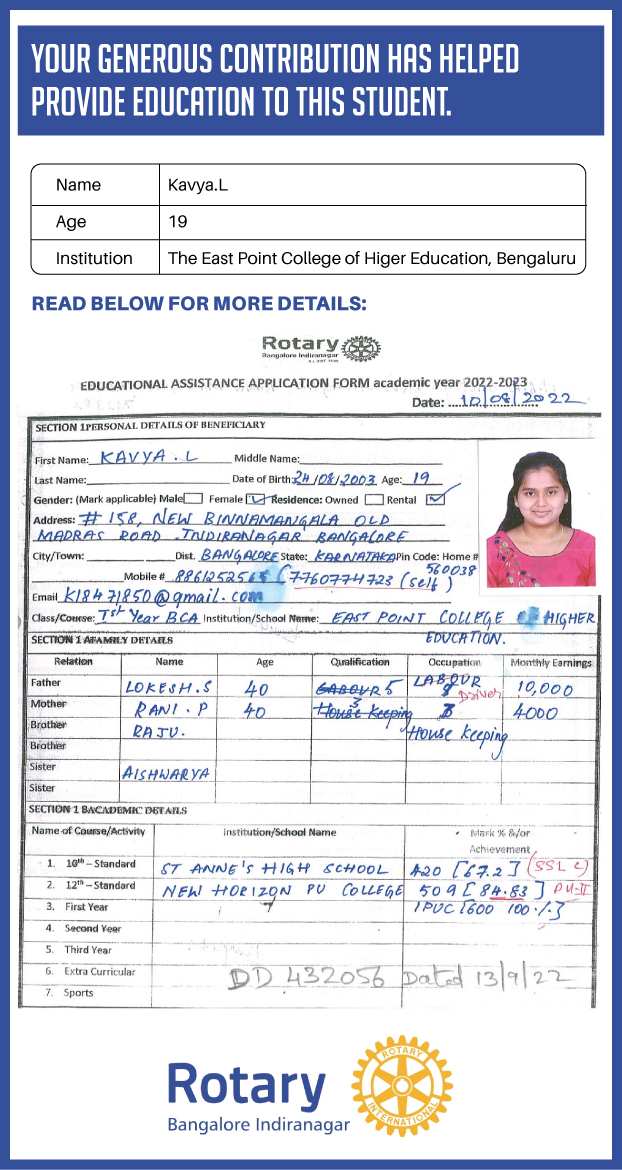 YOUR GENEROUS CONTRIBUTION HAS HELPED
PROVIDE EDUCATION TO THIS STUDENT.
Name Kavya.L
Age 19
Institution The East Point College of Higer Education, Bengaluru
READ BELOW FOR MORE DETAILS:
Rotary
Bangalore Indiranagar
EDUCATIONAL ASSISTANCE APPLICATION FORM academic year 2022-2023
Date: 10/08/2022
SECTION 1PERSONAL DETAILS OF BENEFICIARY
First Name: KAVYA.L Middle Name:
Last Name: Date of Birth: 24/08/2003 Age: 19
Gender: (Mark applicable) Male Female Residence: Owned Rental
Address: # 158, NEW BINNAMANGALA OLD
MADRAS ROAD INDIRANAGAR BANGALORE
City/Town: Dist. BANGALORE State: KARNATAKA Pin Code: Home #
560038
Mobile # (7760774723 (self)
Email k18471850@gmail.com
Class/Course: Ist Year BCA Institution/School Name: EAST POINT COLLEGE OF HIGHER
EDUCATION.
SECTION 1 AFAMILY DETAILS
Relation Name Age Qualification Occupation Monthly Earnings
Father LOKESH.S 40 5 LABOUR Driver 10,000
Mother RANI.P 40 3 House Keeping 4000
Brother RAJU.
Brother
Sister AISHWARYA
Sister
SECTION 1 BACADEMIC DETAILS
Name of Course/Activity Institution/School Name Mark % &/or
Achievement
1. 10th – Standard ST ANNE'S HIGH SCHOOL 420 [67.2] (SSLC)
2. 12th – Standard NEW HORIZON PU COLLEGE 509 [84.83] PU-II
3. First Year IPUC [600 100%]
4. Second Year
5. Third Year
6. Extra Curricular DD 432056 Dated 13/9/22
7. Sports
Rotary
Bangalore Indiranagar
ROTARY
INTERNATIONAL